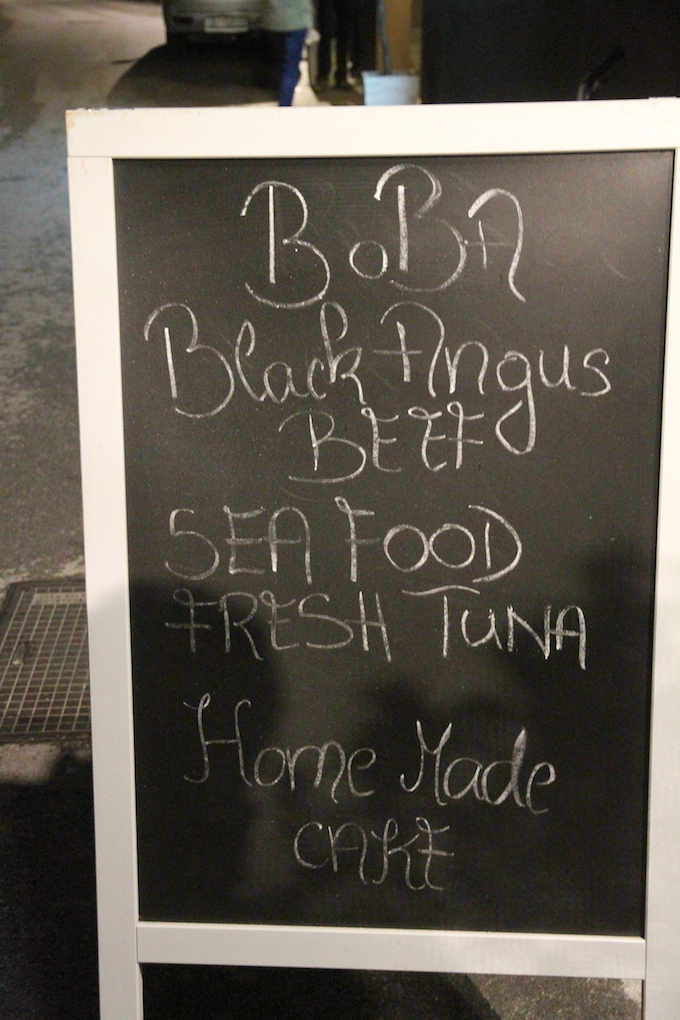 BoBA
Black Angus
BEEF
SEA FOOD
FRESH TUNA
Home Made
CAKE